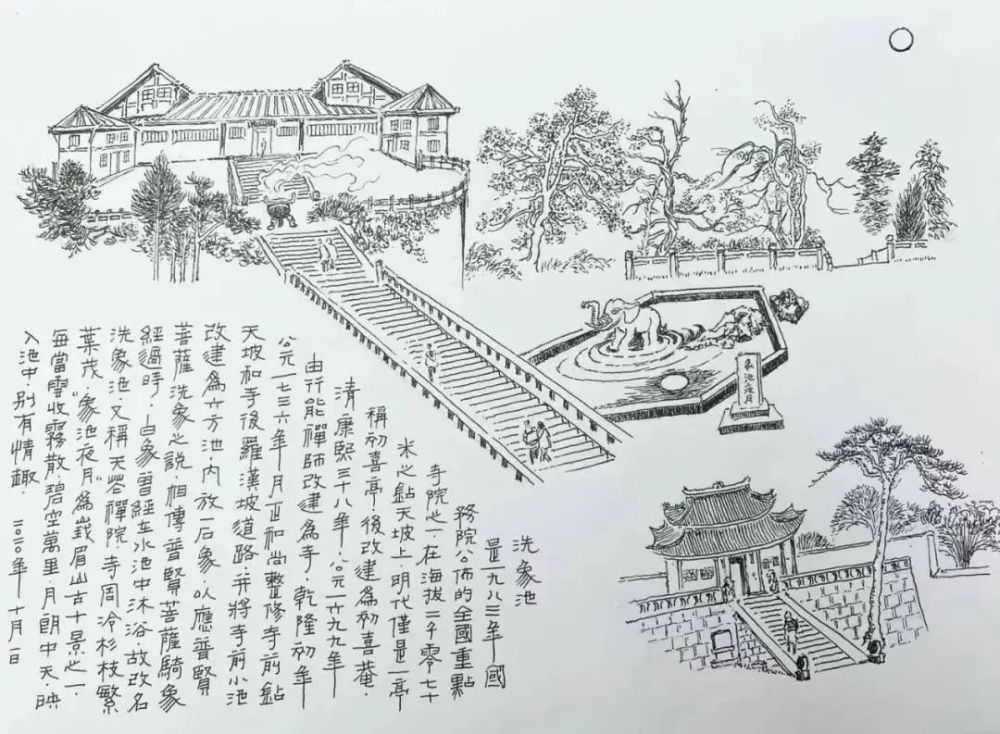 洗象池
是一九八三年國
務院公佈的全國重點
寺院之一.在海拔二千零七十
米之鉆天坡上.明代僅是一亭
稱初喜亭.後改建爲初喜菴.
清康熙三十八年.公元一六九九年
由行能禪師改建爲寺.乾隆初年
公元一七三六年月正和尚整修寺前鉆
天坡和寺後羅漢坡道路.并將寺前小池
改建爲六方池.內放一石象.以應普賢
菩薩洗象之説.相傳普賢菩薩騎象
經過時.白象曾經在水池中沐浴.故改名
洗象池.又稱天花禪院.寺周冷杉枝繁
葉茂."象池夜月"爲峩眉山古十景之一.
每當雲收霧散.碧空萬里.月朗中天.映
入池中.别有情趣.
二〇二〇年十月一日
象池夜月